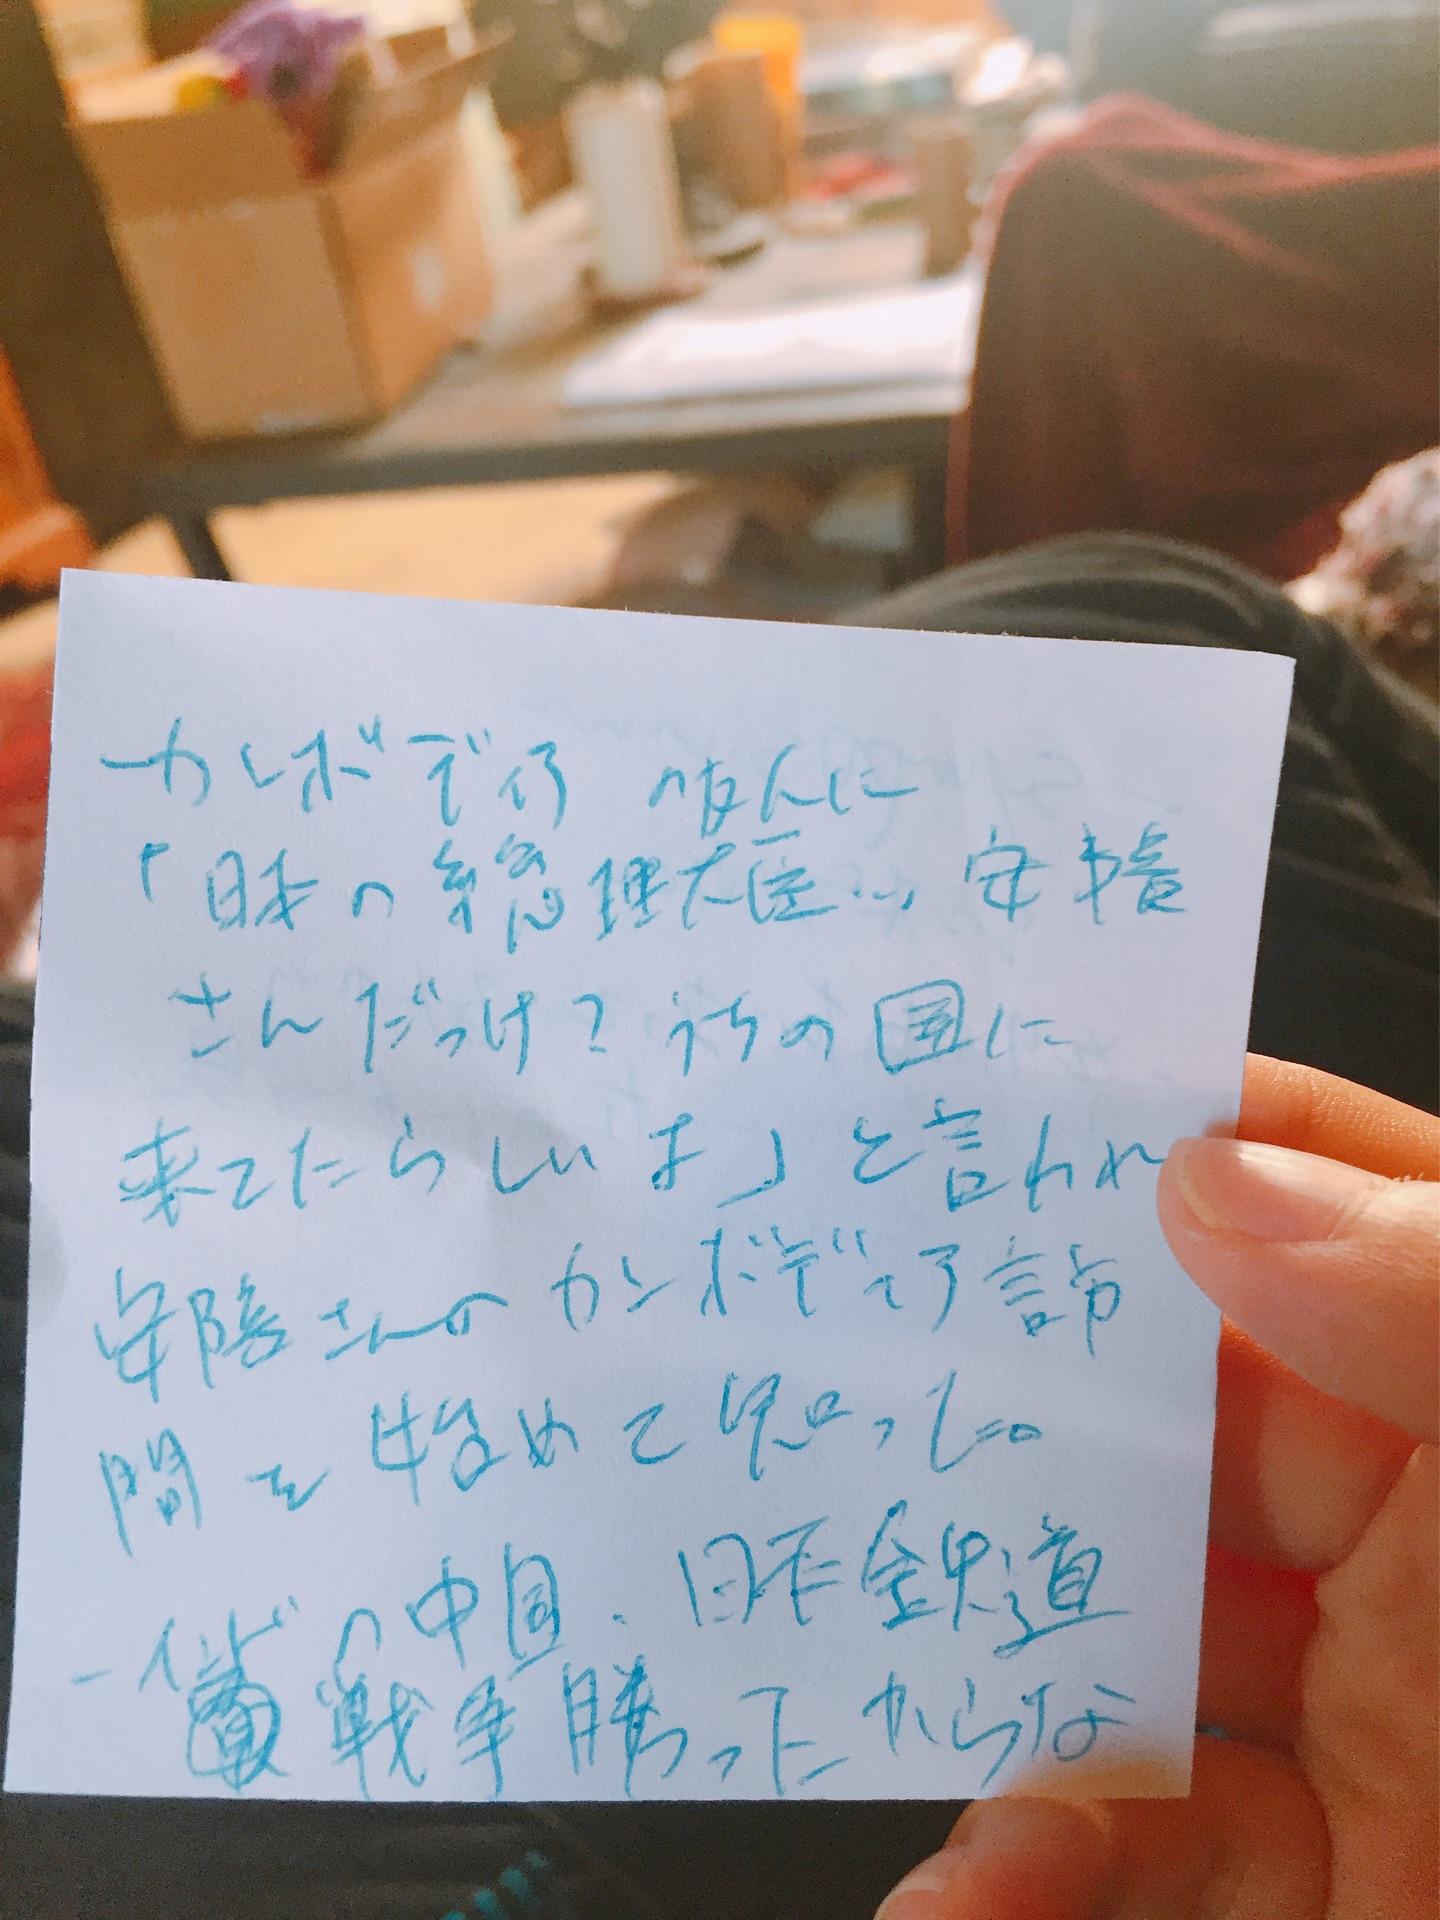 カンボディアの友人に
「日本の総理大臣… 安倍
さんだっけ？うちの国に
来てたらしいよ」と言われ
安陪さんのカンボディア訪
問を始めて知った。
の中国、日本 鉄道
戦争勝ったからな